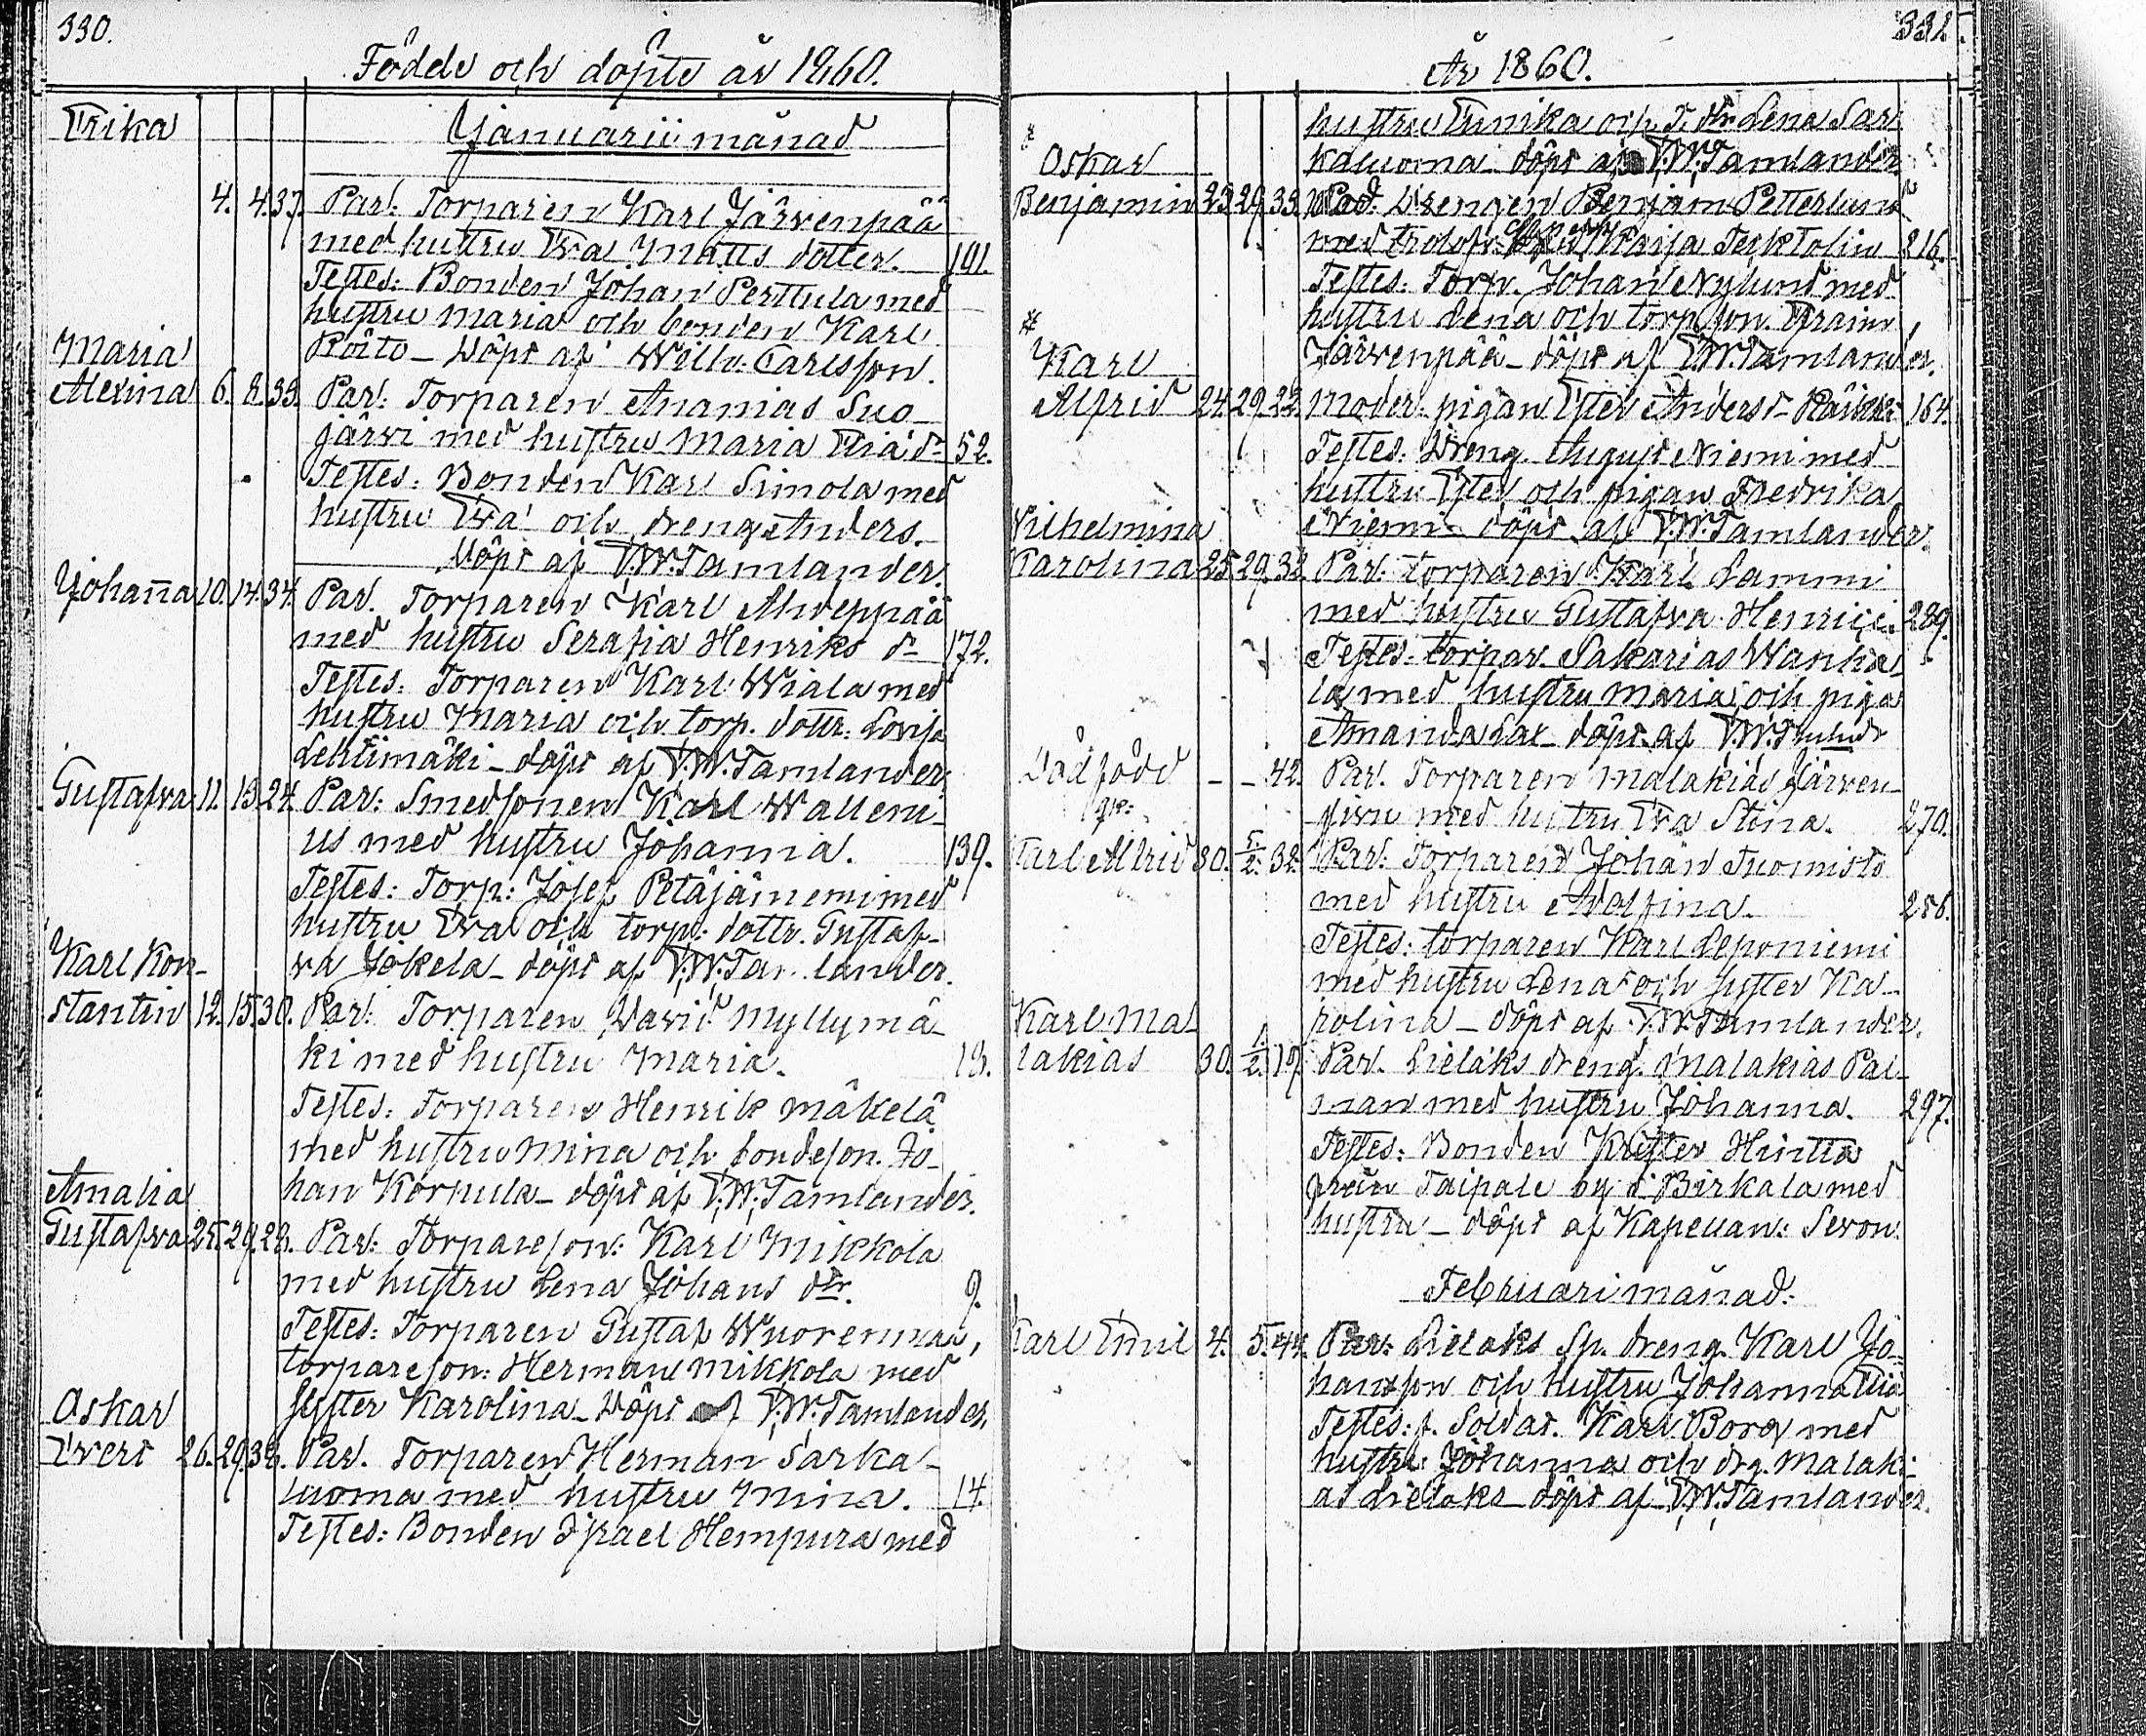 330.
Födde och döpte år 1860.
Erika
Januarii månad
4. 4. 37. Par: Torparen Karl Järvenpää
med hustru Eva Matts dotter. 191.
Testes: Bonden Johan Perttula med
hustru Maria och bonden Karl
Röito - döpt af Wilh: Carlsson.
Maria
Alexina 6. 8. 33. Par: Torparen Ananias Suo-
järvi med hustru Maria Eliæ dr 52.
Testes: Bonden Karl Simola med
hustru Eva och dreng Anders.
Döpt af V.W. Tamlander.
Johanna 10. 14. 34. Par. Torparen Karl Ahveppää
med hustru Serafia Henriks dr 172.
Testes: Torparen Karl Wiala med
hustru Maria och torp. dottr. Lovisa
Lehtimäki - döpt af V.W. Tamlander.
Gustafva 11. 13. 24. Par: Smedsonen Karl Walleni-
us med hustru Johanna. 139.
Testes: Torp: Josef Petäjäniemi med
hustru Eva och torp: dottr. Gustaf-
va Jokela - döpt af V.W. Tamlander.
Karl Kon-
stantin 12. 15. 30. Par: Torparen David Myllymä-
ki med hustru Maria. 13.
Testes: Torparen Henrik Mäkelä
med hustru Mina och bondeson. Jo-
han Korpula - döpt af V.W. Tamlander.
Amalia
Gustafva 25. 29. 23. Par: Torpareson: Karl Mikkola
med hustru Lena Johans dtr. 9.
Testes: Torparen Gustaf Wuorenmaa,
torpareson: Herman Mikkola med
syster Karolina - döpt af V.W. Tamlander.
Oskar
Evert 26. 29. 38. Par. Torparen Herman Sarka-
luoma med hustru Mina. 14.
Testes: Bonden Israel Hempura med
331.
År 1860.
hustru Eunika och T. dtr Lena Sar-
kaluoma - döpt af V.W. Tamlander
Oskar
Benjamin 23. 29. 33. Par. Drengen Benjam Petterlund
med Maija Tesktolin 216.
Testes: Torp. Johan Nylund med
hustru Lena och torp.son. Efraim
Järvenpää - döpt af V.W. Tamlander.
Karl
Alfrid 24. 29. 22. Moder: pigan Ester Anders d. 164.
Testes: Dreng. August Niemi med
hustru Ester och pigan Fredrika
Niemi - döpt af V.W. Tamlander.
Vilhelmina
Karolina 25. 29. 32. Par: torparen Karl Lammi
med hustru Gustafva Henrici. 289.
Testes: torpar. Sakarias Wanha-
la med hustru Maria och piga
Amanda Lax - döpt af V.W.
Dödfödd - - 42. Par. Torparen Malakias Järven-
sivu med hustru Eva Stina. 270.
Karl Alfrid 30. 5/2. 32. Par: Torparen Johan Tuomisto
med hustru Adolfina. 256.
Testes: torparen Karl Leponiemi
med hustru Lena och syster Ka-
rolina - döpt af V.W. Tamlander.
Karl Ma-
lakias 30. 1/2. 19. Par. Lielaks dreng. Malakias Pal-
man med hustru Johanna. 297.
Testes: Bonden Krister Hintta
från Taipale by i Birkala med
hustru - döpt af Kapellan: Seron.
Februari månad:
Karl Emil 4. 5. 44. Par: Lielaks Sp. dreng. Karl Jo-
hansson och hustru Johanna Eliæ
Testes: f. Soldat. Karl Borg med
hustru: Johanna och drg. Malaki-
as Lielaks - döpt af V.W. Tamlander.